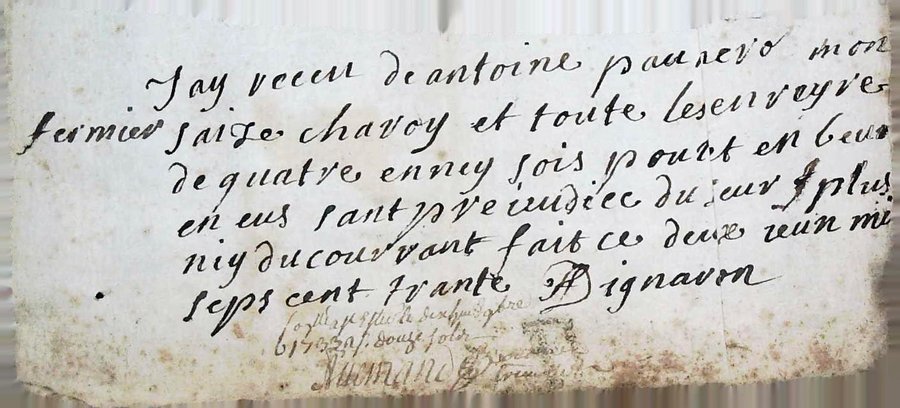 Jay receu de antoine pausero mon
fermier saize charoy et toute lesenreyre
de quatre enney sois pourt en beur
en eus sant preiudice du seur plus
niy ducourrant fait ce deux ieun mi
seps cent trante Bignavon
b 1733 douze solz